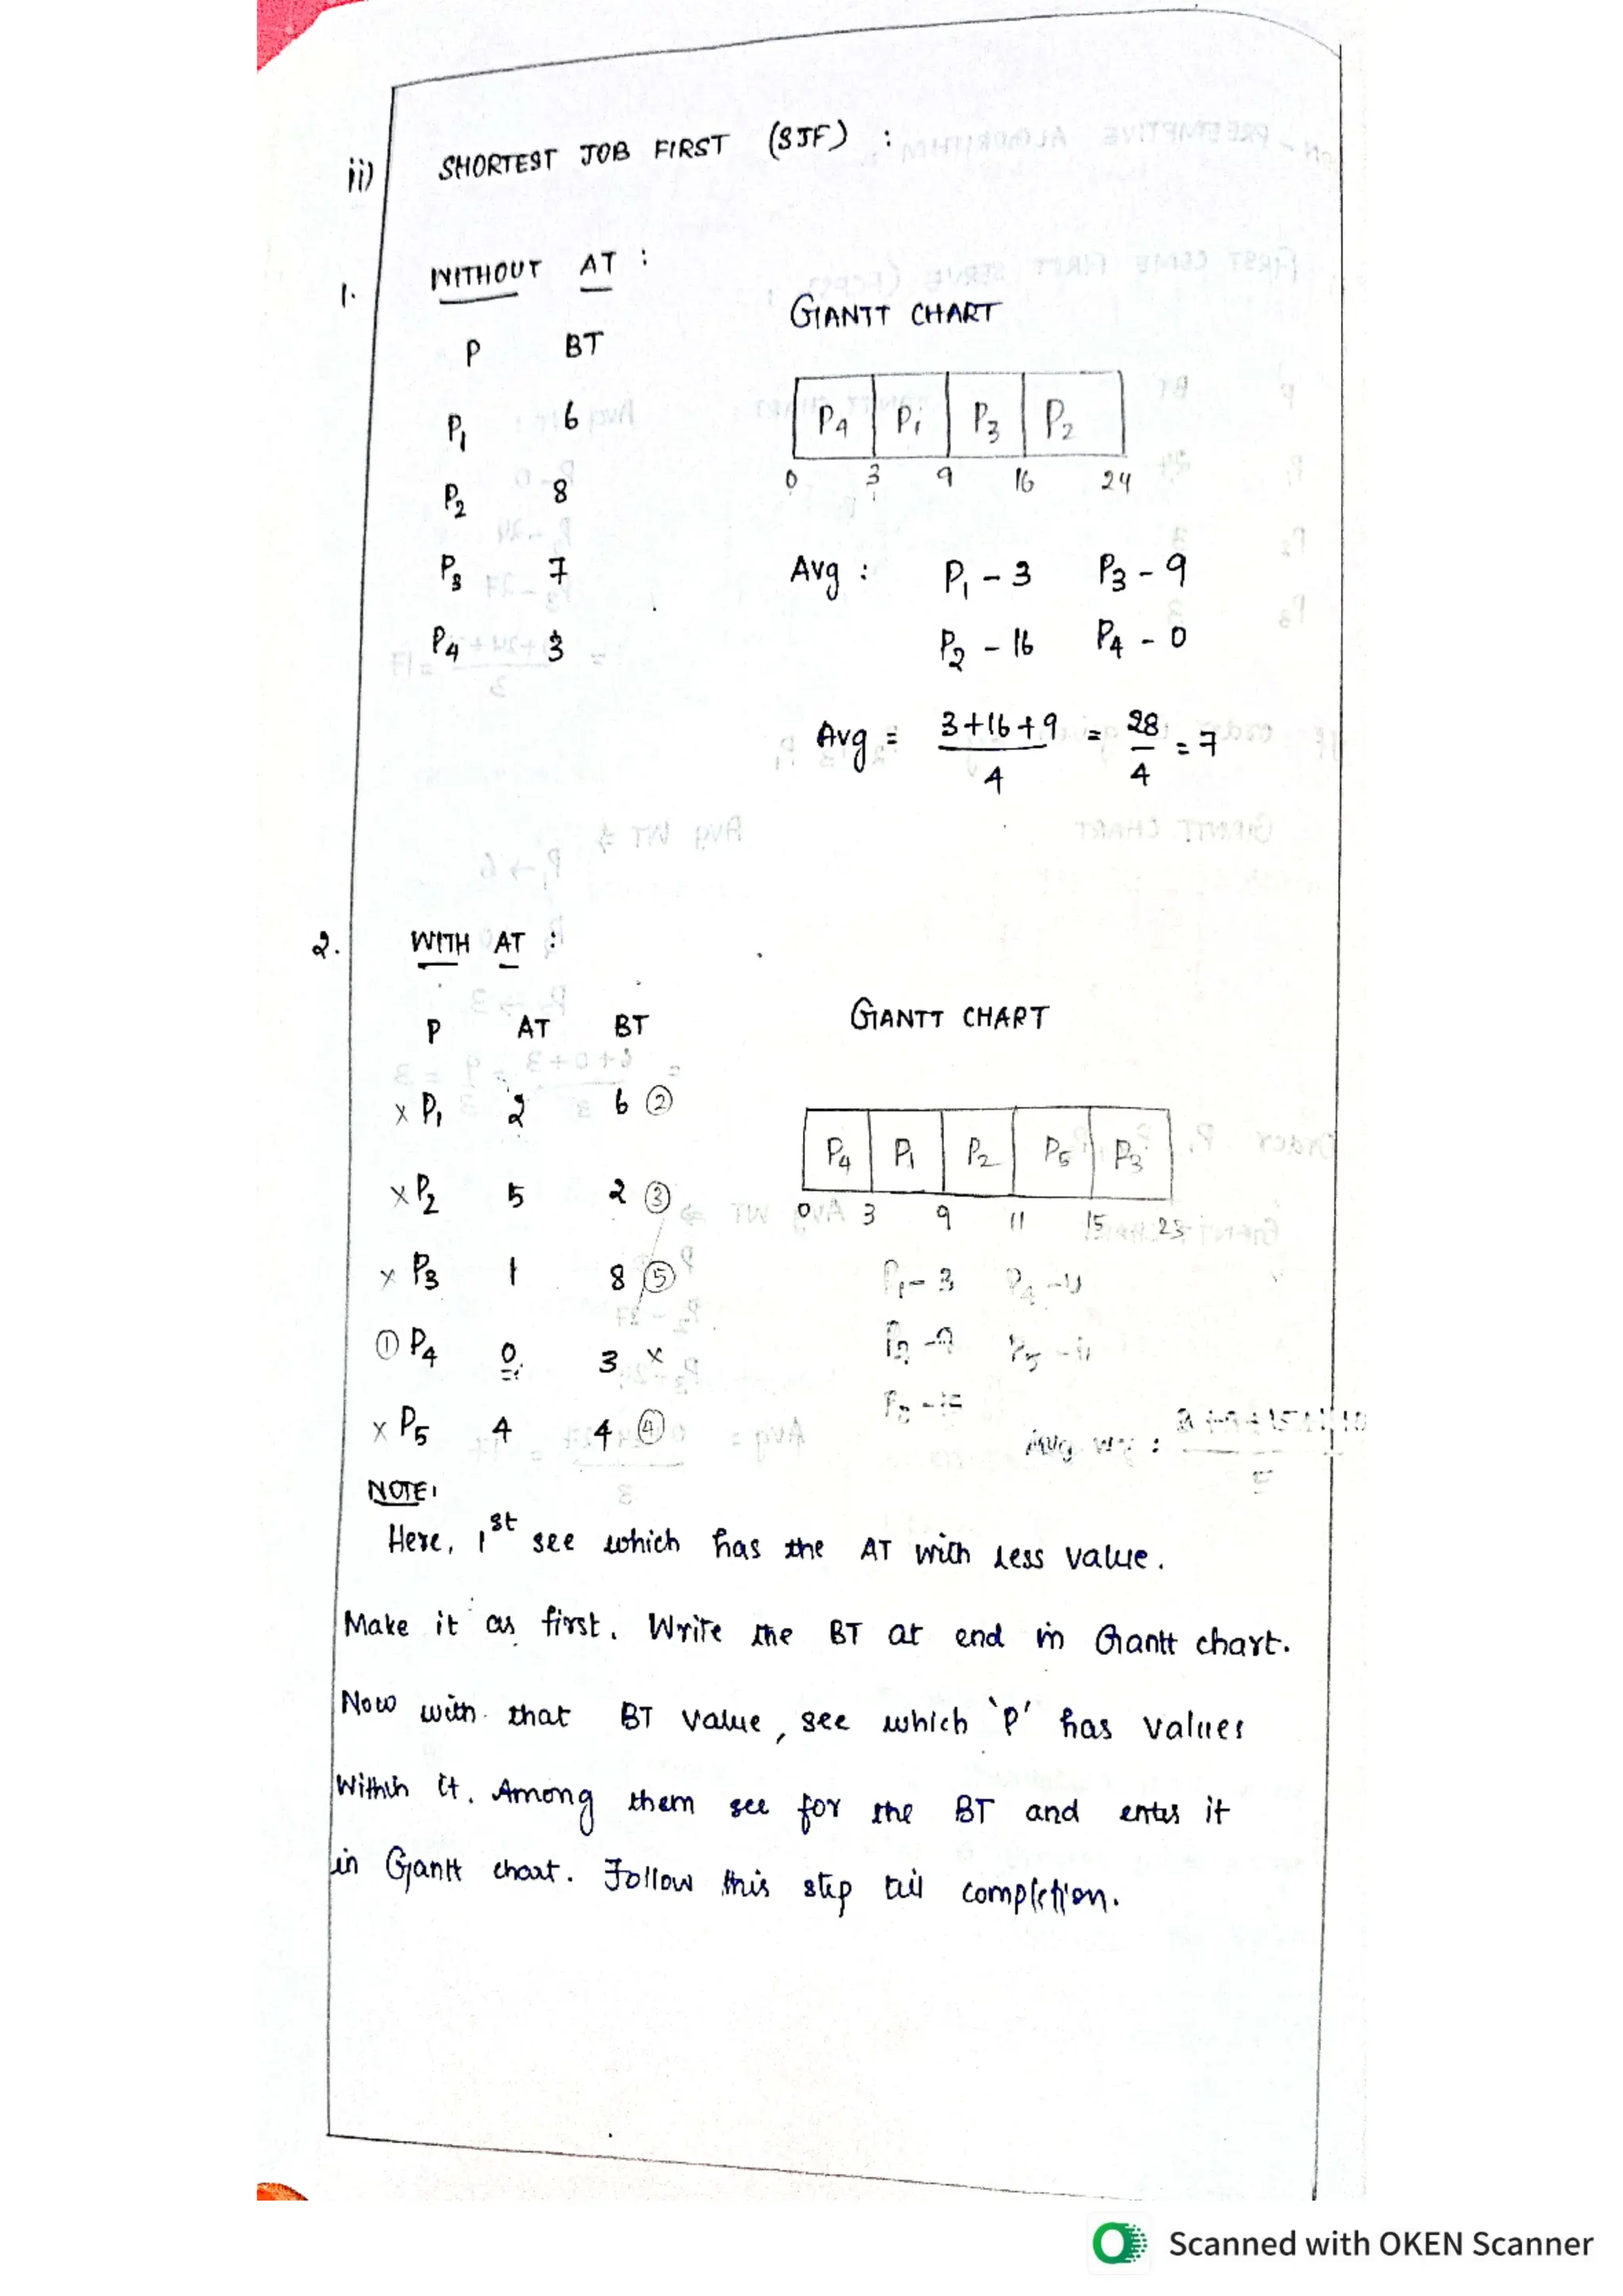 ii) SHORTEST JOB FIRST (SJF) :
1. WITHOUT AT :
GANTT CHART
P BT
P1 6
P2 8
P3 7
P4 3
P4 P1 P3 P2
0 3 9 16 24
Avg : P1 - 3 P3 - 9
P2 - 16 P4 - 0
Avg = 3+16+9 / 4 = 28 / 4 = 7
2. WITH AT :
GANTT CHART
P AT BT
x P1 2 6 ②
x P2 5 2 ③
x P3 1 8 ⑤
① P4 0 3 x
x P5 4 4 ④
P4 P1 P2 P5 P3
0 3 9 11 15 23
P1 - 3
P2 - 9
P5 - 11
NOTE:
Here, 1st see which has the AT with less value.
Make it as first. Write the BT at end in Gantt chart.
Now with that BT value, see which 'P' has values
Within it. Among them see for the BT and enter it
in Gantt chart. Follow this step till completion.
Scanned with OKEN Scanner